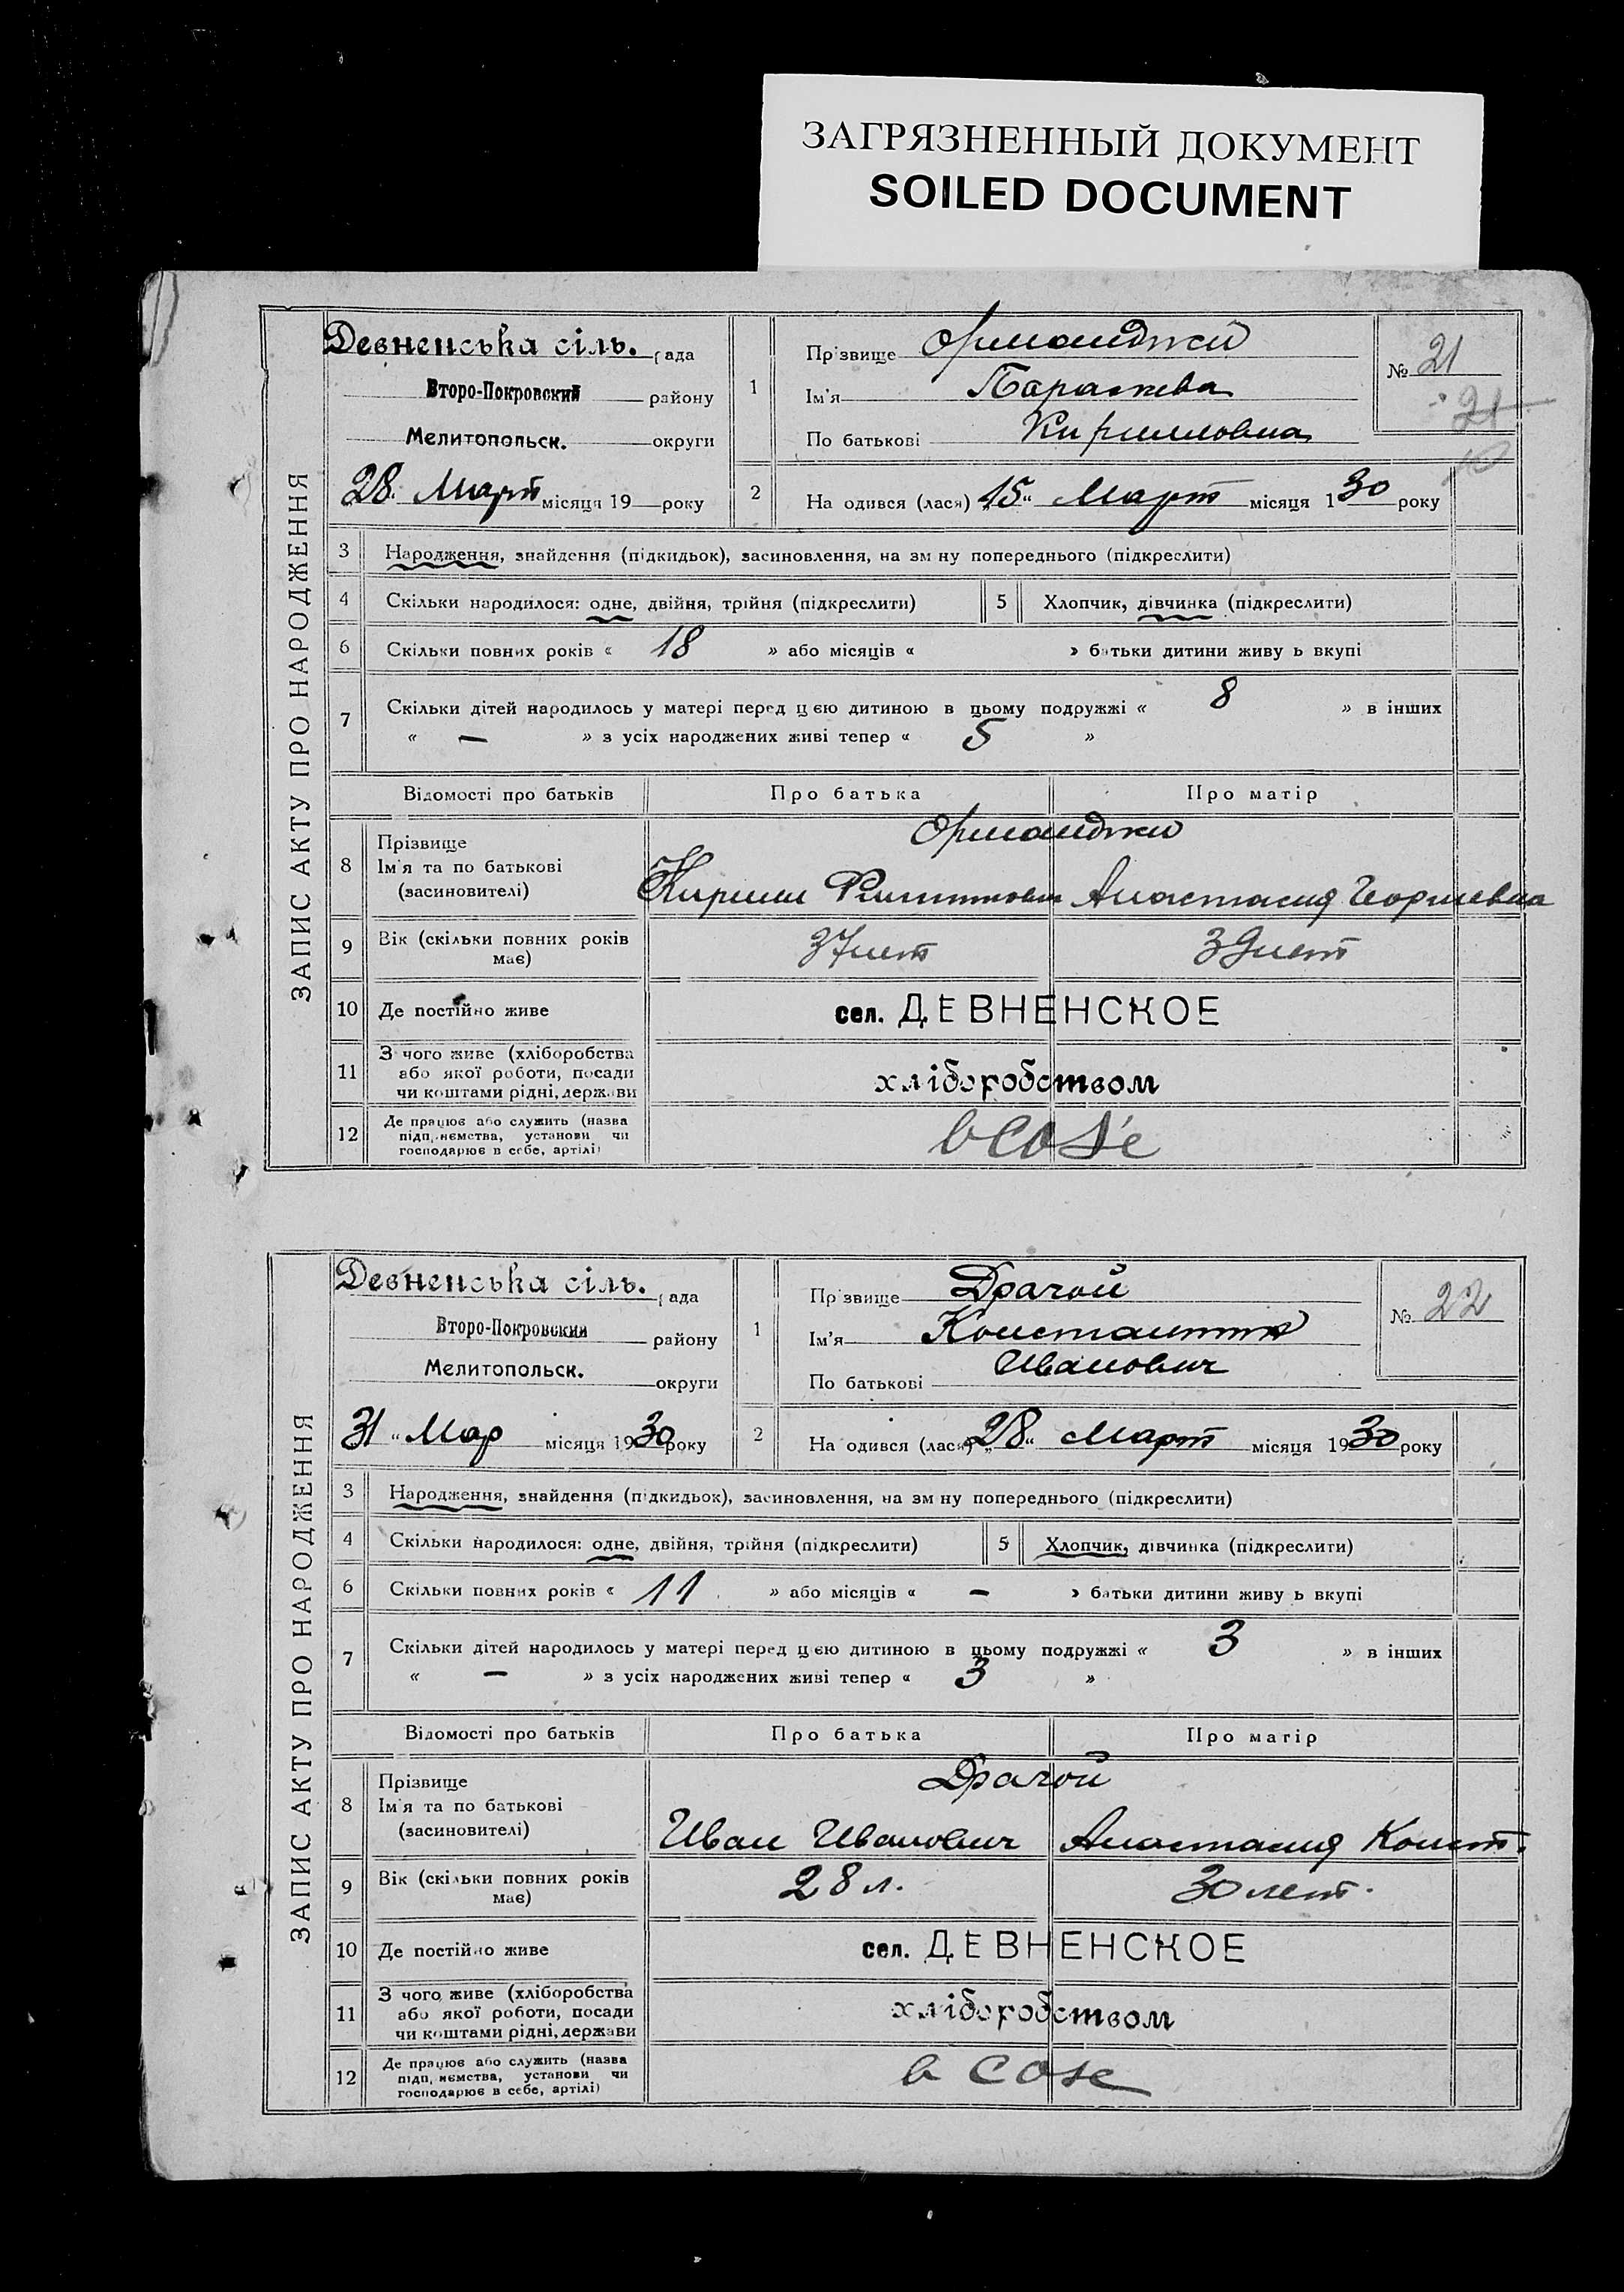 ЗАГРЯЗНЕННЫЙ ДОКУМЕНТ
SOILED DOCUMENT
ЗАПИС АКТУ ПРО НАРОДЖЕННЯ
Девненська сіль. рада
Второ-Покровский району
Мелитопольск. округи
28 Март місяця 19 року
1
Прізвище Орманджи
Ім'я Параскева
По батькові Кирилловна
№ 21
21
2 На одився (лася) „15“ Март місяця 130 року
3 Народження, знайдення (підкидьок), засиновлення, на зм ну попереднього (підкреслити)
4 Скільки народилося: одне, двійня, трійня (підкреслити) 5 Хлопчик, дівчинка (підкреслити)
6 Скільки повних років « 18 » або місяців « » батьки дитини живу ь вкупі
7 Скільки дітей народилось у матері перед цією дитиною в цьому подружжі « 8 » в інших
« — » з усіх народжених живі тепер « 5 »
Відомості про батьків Про батька Про матір
8 Прізвище Орманджи
Ім'я та по батькові
(засиновителі) Кирилл Анастасия Георгиевна
9 Вік (скільки повних років має) 37 лет 39 лет
10 Де постійно живе сел. ДЕВНЕНСКОЕ
11 З чого живе (хліборобства
або якої роботи, посади
чи коштами рідні, держави хліборобством
12 Де працює або служить (назва
підприємства, установи чи
господарює в себе, артілі)
ЗАПИС АКТУ ПРО НАРОДЖЕННЯ
Девненська сіль. рада
Второ-Покровский району
Мелитопольск. округи
31 „ Мар місяця 1930 року
1
Прізвище Драгой
Ім'я Константин
По батькові Иванович
№ 22
2 На одився (лася) „28“ Март місяця 1930 року
3 Народження, знайдення (підкидьок), засиновлення, на зм ну попереднього (підкреслити)
4 Скільки народилося: одне, двійня, трійня (підкреслити) 5 Хлопчик, дівчинка (підкреслити)
6 Скільки повних років « 11 » або місяців « — » батьки дитини живу ь вкупі
7 Скільки дітей народилось у матері перед цією дитиною в цьому подружжі « 3 » в інших
« — » з усіх народжених живі тепер « 3 »
Відомості про батьків Про батька Про матір
8 Прізвище Драгой
Ім'я та по батькові
(засиновителі) Иван Иванович Анастасия Конст.
9 Вік (скільки повних років має) 28 л. 30 лет.
10 Де постійно живе сел. ДЕВНЕНСКОЕ
11 З чого живе (хліборобства
або якої роботи, посади
чи коштами рідні, держави хліборобством
12 Де працює або служить (назва
підприємства, установи чи
господарює в себе, артілі)